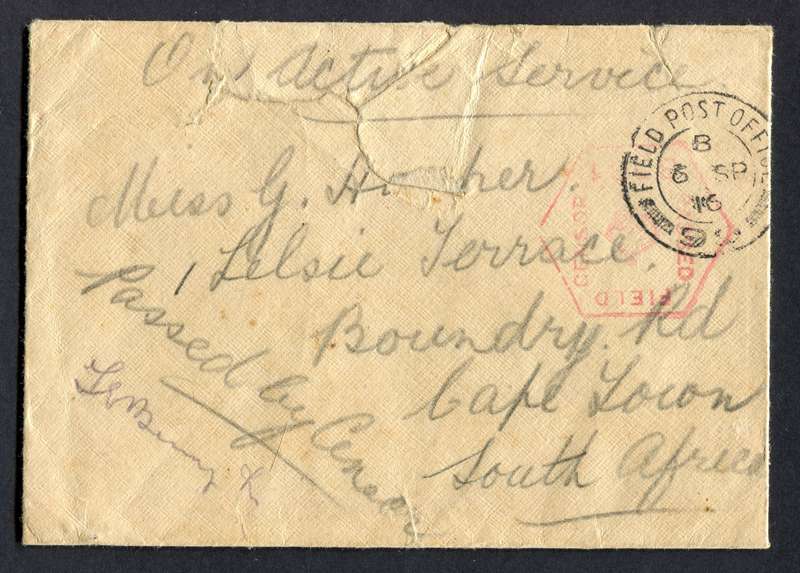 On Active Service
Miss G. Hooher.
1, Lelsie Terrace.
Boundry. Rd
Cape Town
South Africa
Passed by Censor
FIELD POST OFFICE
B
6 SP
16
FIELD
CENSOR